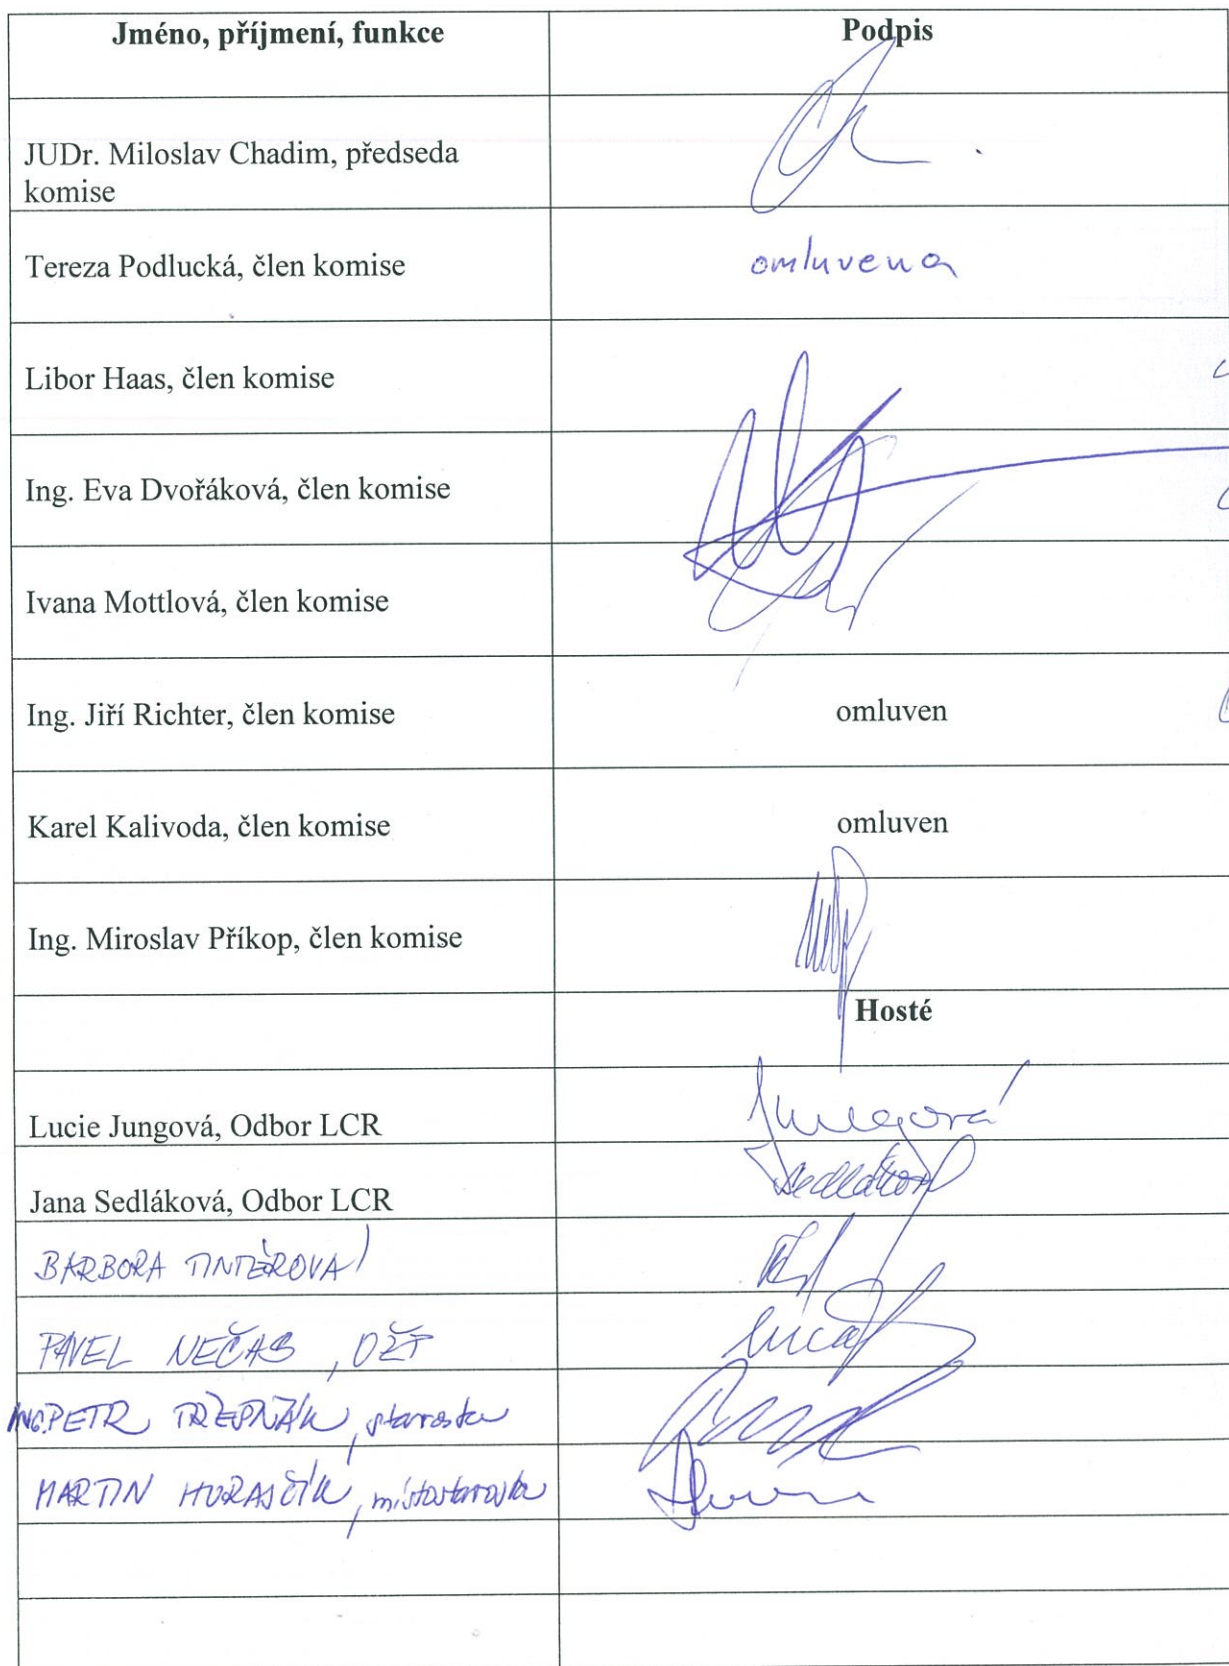 Jméno, příjmení, funkce Podpis
JUDr. Miloslav Chadim, předseda
komise
Tereza Podlucká, člen komise omluvena
Libor Haas, člen komise
Ing. Eva Dvořáková, člen komise
Ivana Mottlová, člen komise
Ing. Jiří Richter, člen komise omluven
Karel Kalivoda, člen komise omluven
Ing. Miroslav Příkop, člen komise
Hosté
Lucie Jungová, Odbor LCR Jungová
Jana Sedláková, Odbor LCR Sedláková
BARBORA TINTĚROVÁ
PAVEL NEČAS, OŽP
ING. PETR TŘEŠŇÁK, starosta
MARTIN HURAJČÍK, místostarosta